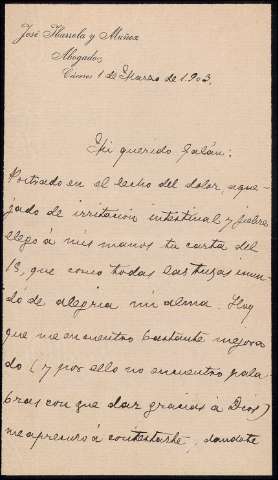 José Ibarrola y Muñoz
Abogados
Cáceres 1 de Marzo de 1903.
Mi querido Galán:
Postrado en el lecho del dolor, aque-
jado de irritación intestinal y fiebre
llegó á mis manos tu carta del
13, que como todas las tuyas inun-
dó de alegria mi alma. Hoy
que me encuentro bastante mejora
do (y por ello no encuentro pala
bras con que dar gracias á Dios)
me apresuro á contestarte, dandote